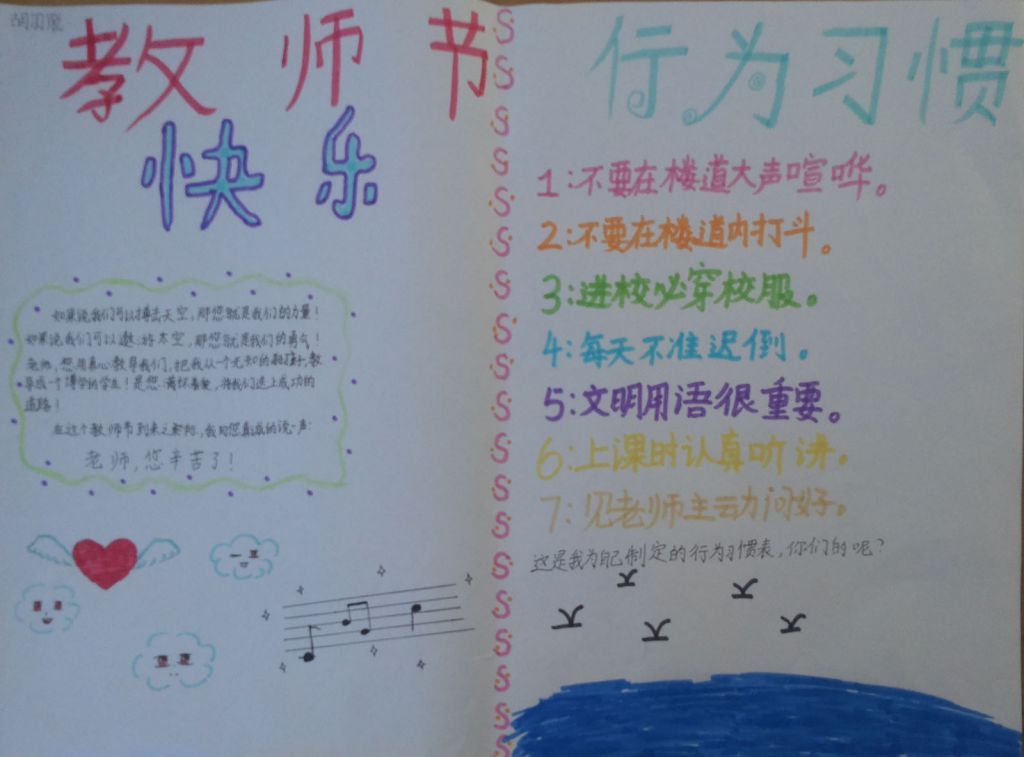 教师节
快乐
如果说我们可以搏击天空,那您就是我们的力量!
如果说我们可以遨游太空,那您就是我们的勇气!
老师,您用真心教导我们,把我从一个无知的孩子,教
导成一个博学的学生!是您,满怀着爱,将我们送上成功的
道路!
在这个教师节到来之际,我向您真诚的说一声:
老师,您辛苦了!
行为习惯
1:不要在楼道大声喧哗。
2:不要在楼道内打斗。
3:进校必穿校服。
4:每天不准迟到。
5:文明用语很重要。
6:上课时认真听讲。
7:见老师主动问好。
这是我为自己制定的行为习惯表,你们的呢?